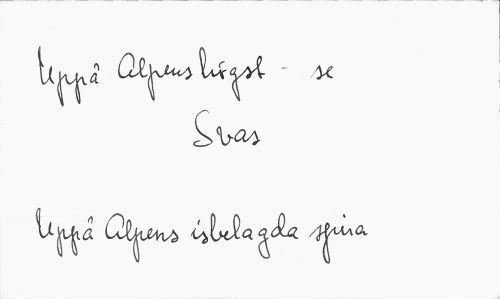 Uppå Alpens högst - se
Svas
Uppå Alpens isbelagda spira